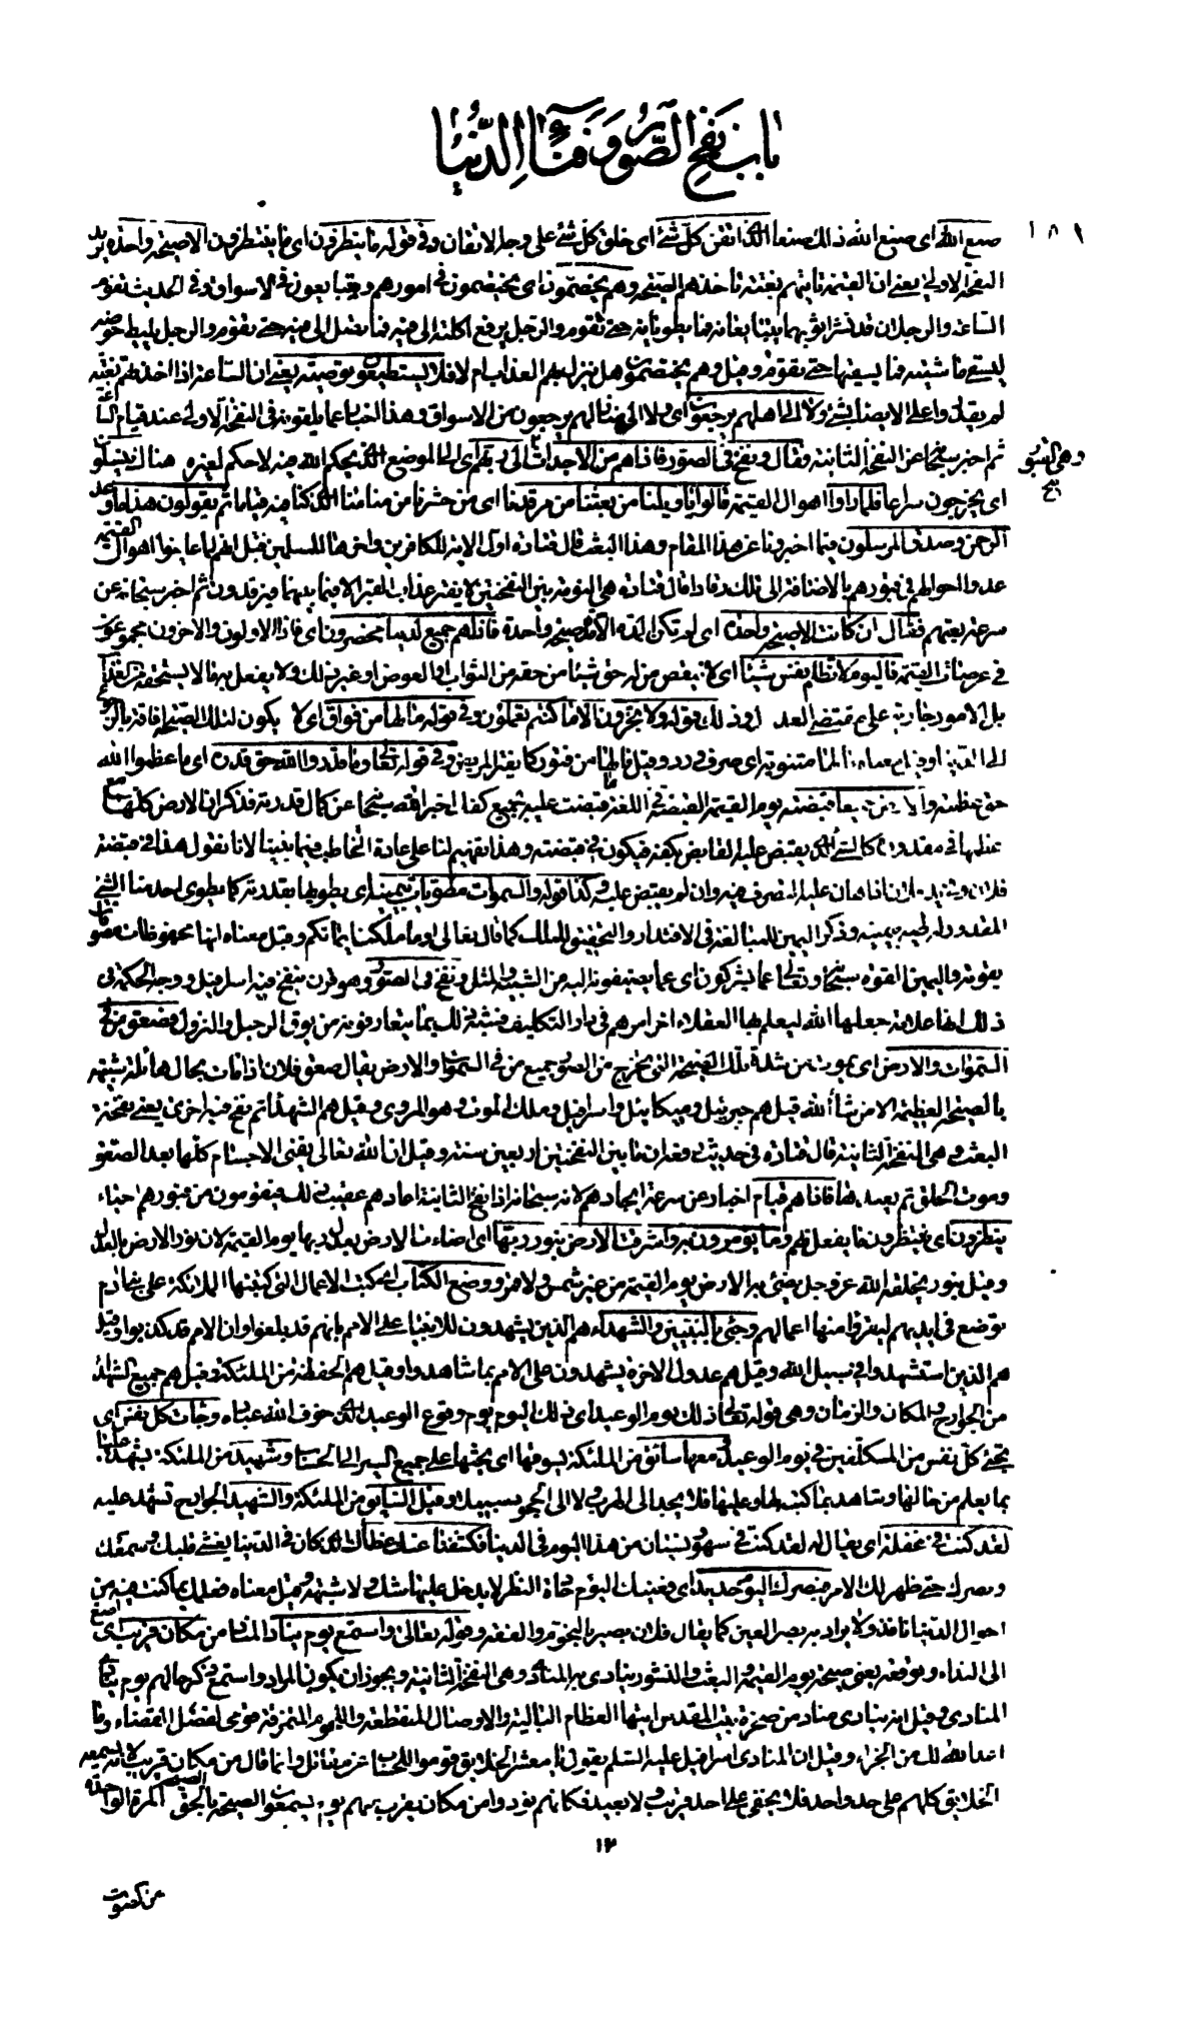 باب نفخ الصّور وفناء الدّنيا
١٨٩
صنع الله اى صنع الله ذلك صنعا الّذى اتقن كلّ شئ اى خلق كلّ شئ على وجه الاتقان وفى قوله ما ينظرون اى ما ينتظرون الا صيحة واحدة يريد
النفخة الاولى يعنى ان القيمة تاتيهم بغتة تاخذهم الصّيحة وهم يخصّمون اى يختصمون فى امورهم ويتبايعون فى الاسواق وفى الحديث تقوم
السّاعة والرجلان قد نشرا ثوبهما يتبايعانه فما يطويانه حتى تقوم والرجل يرفع اكلته الى فيه فما تصل الى فيه حتى تقوم والرجل يليط حوضه
ليسقى ماشيته فما يسقيها حتى تقوم وقيل وهم يختصمون هل ينزل بهم العذاب ام لا فلا يستطيعون توصية يعنى ان السّاعة اذا اخذتهم بغتة
لم يقدروا على الايصاء بشئ ولا الى اهلهم يرجعون اى ولا الى منازلهم يرجعون من الاسواق وهذا اخبار عما يلقونه فى النفخة الاولى عند قيام السّاعة
ثم اخبر سبحانه عن النفخة الثانية فقال ونفخ فى الصّور فاذا هم من الاجداث الى ربهم اى الى الموضع الّذى يحكم الله فيه لا حكم لغيره هناك ينسلون
وهى القبور
اى يخرجون سراعا فلما راوا اهوال القيمة قالوا يا ويلنا من بعثنا من مرقدنا اى من حشرنا من منامنا الّذى كنا فيه نياما ثم يقولون هذا ما وعد
الرحمن وصدق المرسلون فيما اخبرونا عن هذا المقام وهذا البعث قال قتادة اول الاية للكافرين واخرها للمسلمين قيل انهم لما عاينوا اهوال القيمة
عدوا احوالهم فى قبورهم بالاضافة الى تلك رقادا قال قتادة هى النومة بين النفختين لا يفتر عذاب القبر الا فيما بينهما فيرقدون ثم اخبر سبحانه عن
سرعة بعثهم فقال ان كانت الا صيحة واحدة اى لم تكن المدة الا مدة صيحة واحدة فاذا هم جميع لدينا محضرون اى فاذا الاولون والاخرون مجموعون
فى عرصات القيمة فاليوم لا تظلم نفس شيئا اى لا ينقص من له حق شيئا من حقه من الثواب او العوض او غير ذلك ولا يفعل به ما لا يستحقه من العذاب
بل الامور جارية على مقتضى العدل وذلك قوله ولا تجزون الا ما كنتم تعملون وفى قوله ما لها من فواق اى لا يكون لتلك الصّيحة افاقة بالرجوع
الى الدنيا وقيل معناه ما لها مثنوية اى صرف ورد وقيل ما لها من فتور كما يفتر المريض وفى قوله تعالى وما قدروا الله حق قدره اى ما عظموا الله
حق عظمته والارض جميعا قبضته يوم القيمة القبضة فى اللغة ما قبضت عليه بجميع كفك اخبر الله سبحانه عن كمال قدرته فذكر ان الارض كلها مع
عظمها فى مقدوره كالشئ الّذى يقبض عليه القابض بكفه فيكون فى قبضته وهذا تفهيم لنا على عادة التخاطب فيما بيننا لانا نقول هذا فى قبضة
فلان وفى يد فلان اذا هان عليه التصرف فيه وان لم يقبض عليه وكذا قوله والسموات مطويات بيمينه اى يطويها بقدرته كما يطوى احد منا الشئ
المقدور له طيه بيمينه وذكر اليمين للمبالغة فى الاقتدار والتحقيق للملك كما قال تعالى او ما ملكت ايمانكم وقيل معناه انها محفوظات مصونات
بقوته واليمين القوة سبحانه وتعالى عما يشركون اى عما يضيفونه اليه من الشبيه والمثل ونفخ فى الصّور وهو قرن ينفخ فيه اسرافيل ووجه الحكمة فى
ذلك انها علامة جعلها الله ليعلم بها العقلاء اخر امرهم فى دار التكليف فشبه ذلك بما يتعارفونه من بوق الرحيل والنزول فصعق من فى
السّموات والارض اى يموت من شدة تلك الصّيحة التى تخرج من الصّور جميع من فى السّموات والارض يقال صعق فلان اذا مات بحال هائلة شبيهة
بالصيحة العظيمة الا من شاء الله قيل هم جبرئيل وميكائيل واسرافيل وملك الموت وهو المروى وقيل هم الشهداء ثم نفخ فيه اخرى يعنى نفخة
البعث وهى النفخة الثانية قال قتادة فى حديث رفعه ان ما بين النفختين اربعين سنة وقيل ان الله تعالى يفنى الاجسام كلها بعد الصّعق
وموت الخلق ثم يعيدها فاذا هم قيام اخبار عن سرعة ايجادهم لانه سبحانه اذا نفخ الثانية اعادهم عقيب ذلك فيقومون من قبورهم احياء
ينظرون اى ينتظرون ما يفعل بهم وما يؤمرون به واشرقت الارض بنور ربّها اى اضاءت الارض بعدل ربها يوم القيمة لان نور الارض بالعدل
وقيل بنور يخلقه الله عز وجل يضئ به الارض يوم القيمة من غير شمس ولا قمر ووضع الكتاب اى كتب الاعمال التى كتبتها الملائكة على بنى ادم
توضع فى ايديهم ليقرؤا منها اعمالهم وجئ بالنبيين والشهداء هم الذين يشهدون للانبياء على الامم بانهم قد بلغوا وان الامم قد كذبوا وقيل
هم الذين استشهدوا فى سبيل الله وقيل هم عدول الاخرة يشهدون على الامم بما شاهدوا وقيل هم الحفظة من الملئكة وقيل هم جميع الشهداء
من الجوارح والمكان والزمان وهى قوله تعالى ذلك يوم الوعيد اى ذلك اليوم يوم وقوع الوعيد الّذى خوف الله عباده وجاءت كل نفس اى
تجئ كلّ نفس من المكلّفين فى يوم الوعيد ومعها سائق من الملئكة يسوقها اى يحثها على جميع السير الى الحساب وشهيد من الملئكة يشهد عليها
بما يعلم من حالها وشاهد بما كتبه لها وعليها فلا يجد الى الهرب ولا الى الجحود سبيلا وقيل السّائق من الملئكة والشهيد الجوارح تشهد عليه
لقد كنت فى غفلة اى يقال له لقد كنت فى سهو ونسيان من هذا اليوم فى الدنيا فكشفنا عنك غطاءك الّذى كان فى الدّنيا يغشى قلبك وسمعك
وبصرك حتى ظهر لك الامر فبصرك اليوم حديد اى فعينك اليوم حادة النظر لا يدخل عليها شك ولا شبهة وقيل معناه فعلمك بما كنت فيه من
احوال الدّنيا نافذ ولا يراد به بصر العين كما يقال فلان بصير بالنحو والفقه وقوله تعالى واستمع يوم يناد المناد من مكان قريب اى اصغ
الى النداء وتوقعه يعنى صيحة يوم القيمة والبعث والنشور ينادى به المنادى وهى النفخة الثانية ويجوز ان يكون المراد واستمع ذكر حالهم يوم ينادى
المنادى وقيل انه ينادى مناد من صخرة بيت المقدس ايتها العظام البالية والاوصال المنقطعة واللحوم المتمزقة قومى لفصل القضاء وما
اعد الله لك من الجزاء وقيل ان المنادى اسرافيل عليه السّلم يقول يا معشر الخلائق قوموا للحساب عن مقاتل وانما قال من مكان قريب لانه يسمعه
الخلائق كلهم على حد واحد فلا يخفى على احد قريب ولا بعيد فكانهم نودوا من مكان يقرب منهم يوم يسمعون الصيحة بالحق الصيحة المرة الواحدة
١٢
من كصوت